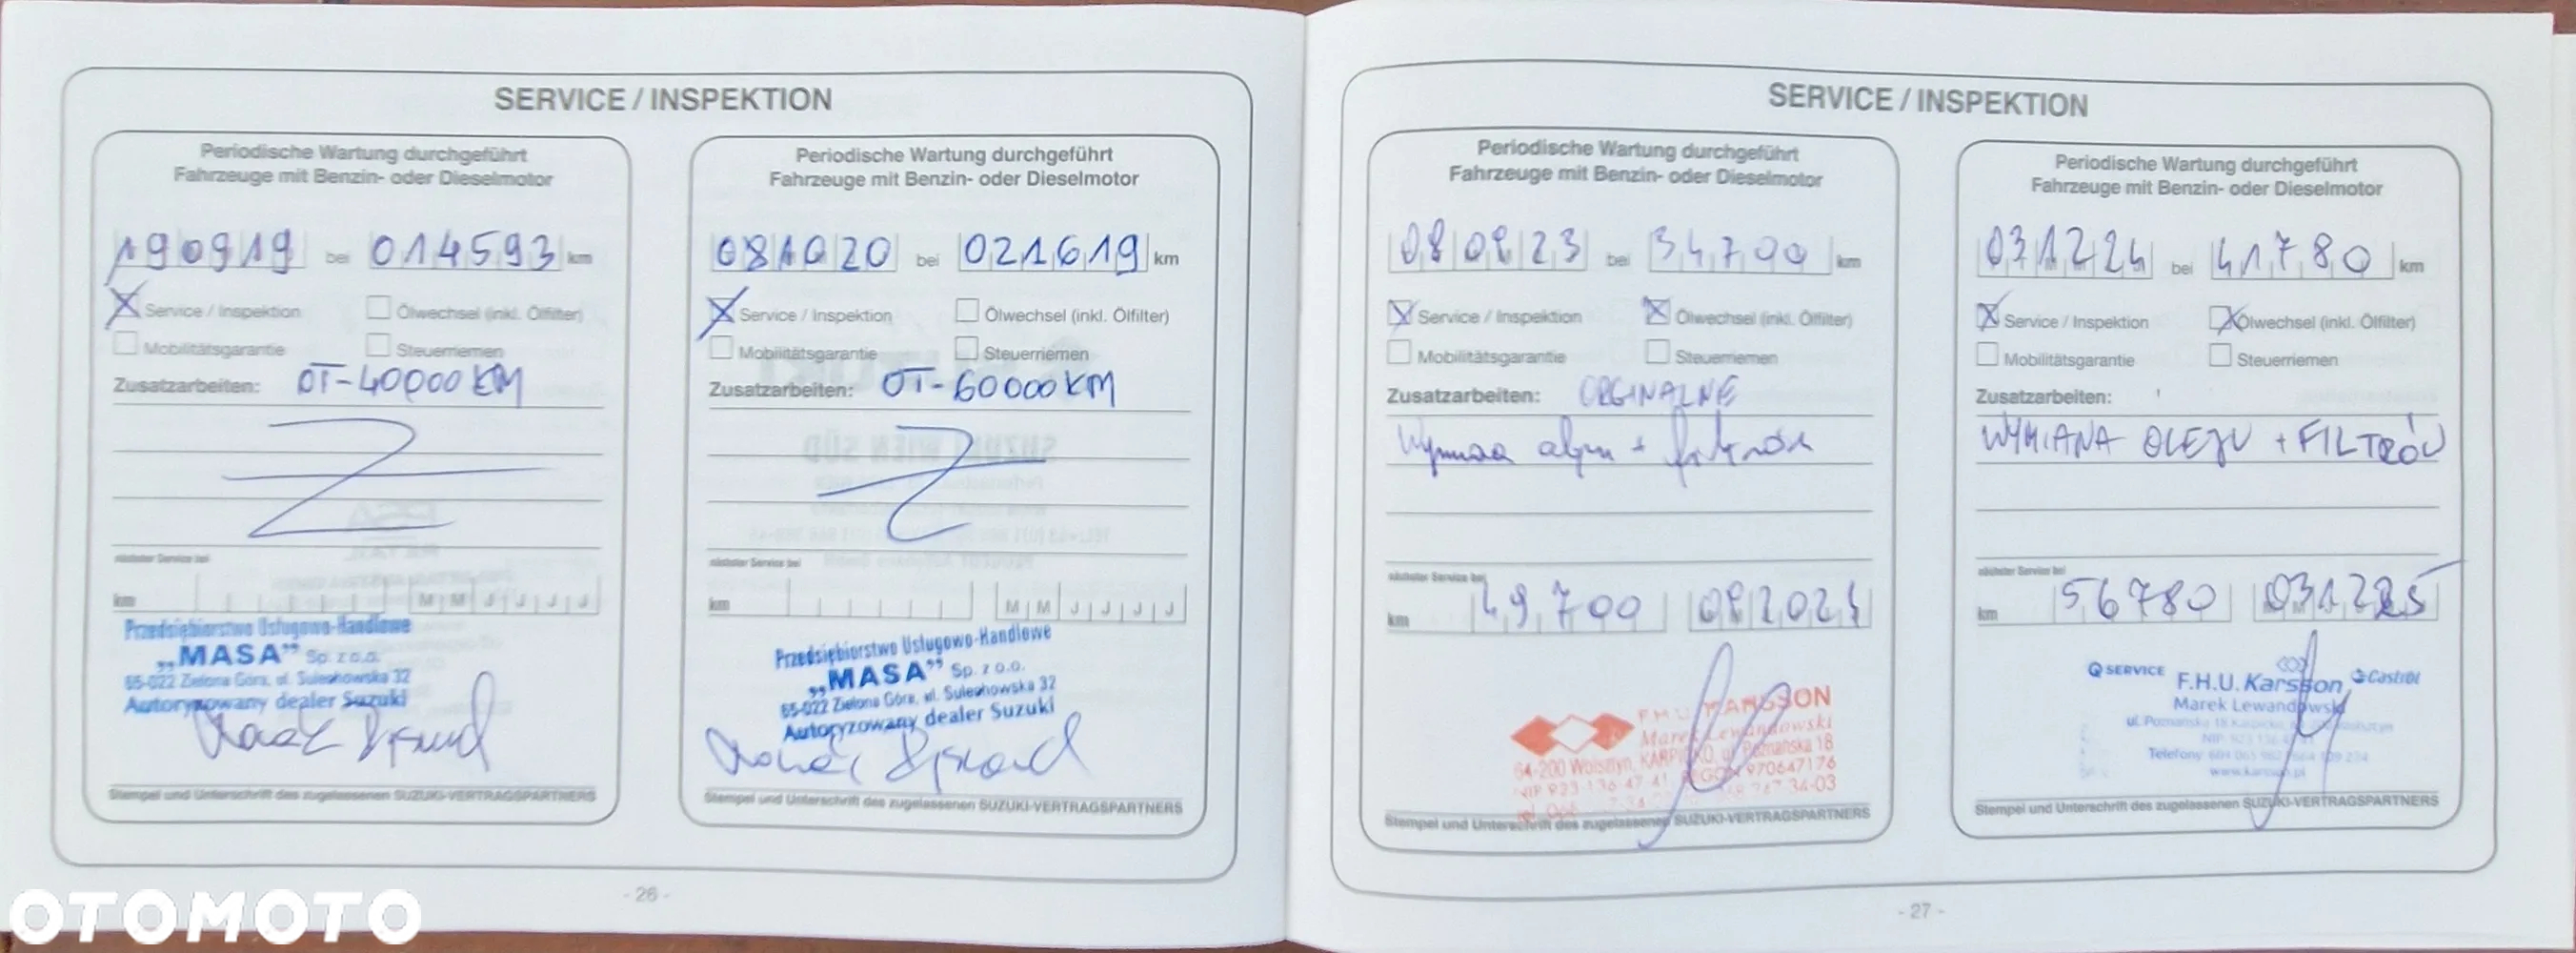 SERVICE / INSPEKTION
Periodische Wartung durchgeführt
Fahrzeuge mit Benzin- oder Dieselmotor
190919 bei 014593 km
Service / Inspektion Ölwechsel (inkl. Ölfilter)
Mobilitätsgarantie Steuerriemen
Zusatzarbeiten: OT-40000 KM
nächster Service bei
km M M J J J J
Przedsiębiorstwo Usługowo-Handlowe
„MASA” Sp. z o.o.
65-022 Zielona Góra, ul. Sulechowska 32
Autoryzowany dealer Suzuki
Stempel und Unterschrift des zugelassenen SUZUKI-VERTRAGSPARTNERS
Periodische Wartung durchgeführt
Fahrzeuge mit Benzin- oder Dieselmotor
081020 bei 021619 km
Service / Inspektion Ölwechsel (inkl. Ölfilter)
Mobilitätsgarantie Steuerriemen
Zusatzarbeiten: OT-60000 KM
nächster Service bei
km M M J J J J
Przedsiębiorstwo Usługowo-Handlowe
„MASA” Sp. z o.o.
65-022 Zielona Góra, ul. Sulechowska 32
Autoryzowany dealer Suzuki
Stempel und Unterschrift des zugelassenen SUZUKI-VERTRAGSPARTNERS
- 26 -
SERVICE / INSPEKTION
Periodische Wartung durchgeführt
Fahrzeuge mit Benzin- oder Dieselmotor
bei 34700 km
Service / Inspektion Ölwechsel (inkl. Ölfilter)
Mobilitätsgarantie Steuerriemen
Zusatzarbeiten: ORGINALNE
nächster Service bei
km 49700
F.H.U. KARSSON
Marek Lewandowski
64-200 Wolsztyn, KARPICKO, ul. Poznańska 18
NIP 923 136 47 41 REGON 970647176
Stempel und Unterschrift des zugelassenen SUZUKI-VERTRAGSPARTNERS
Periodische Wartung durchgeführt
Fahrzeuge mit Benzin- oder Dieselmotor
031224 bei 41780 km
Service / Inspektion Ölwechsel (inkl. Ölfilter)
Mobilitätsgarantie Steuerriemen
Zusatzarbeiten:
WYMIANA OLEJU + FILTRÓW
nächster Service bei
km 56780 031225
Q SERVICE F.H.U. Karsson Castrol
Marek Lewandowski
Stempel und Unterschrift des zugelassenen SUZUKI-VERTRAGSPARTNERS
- 27 -
OTOMOTO